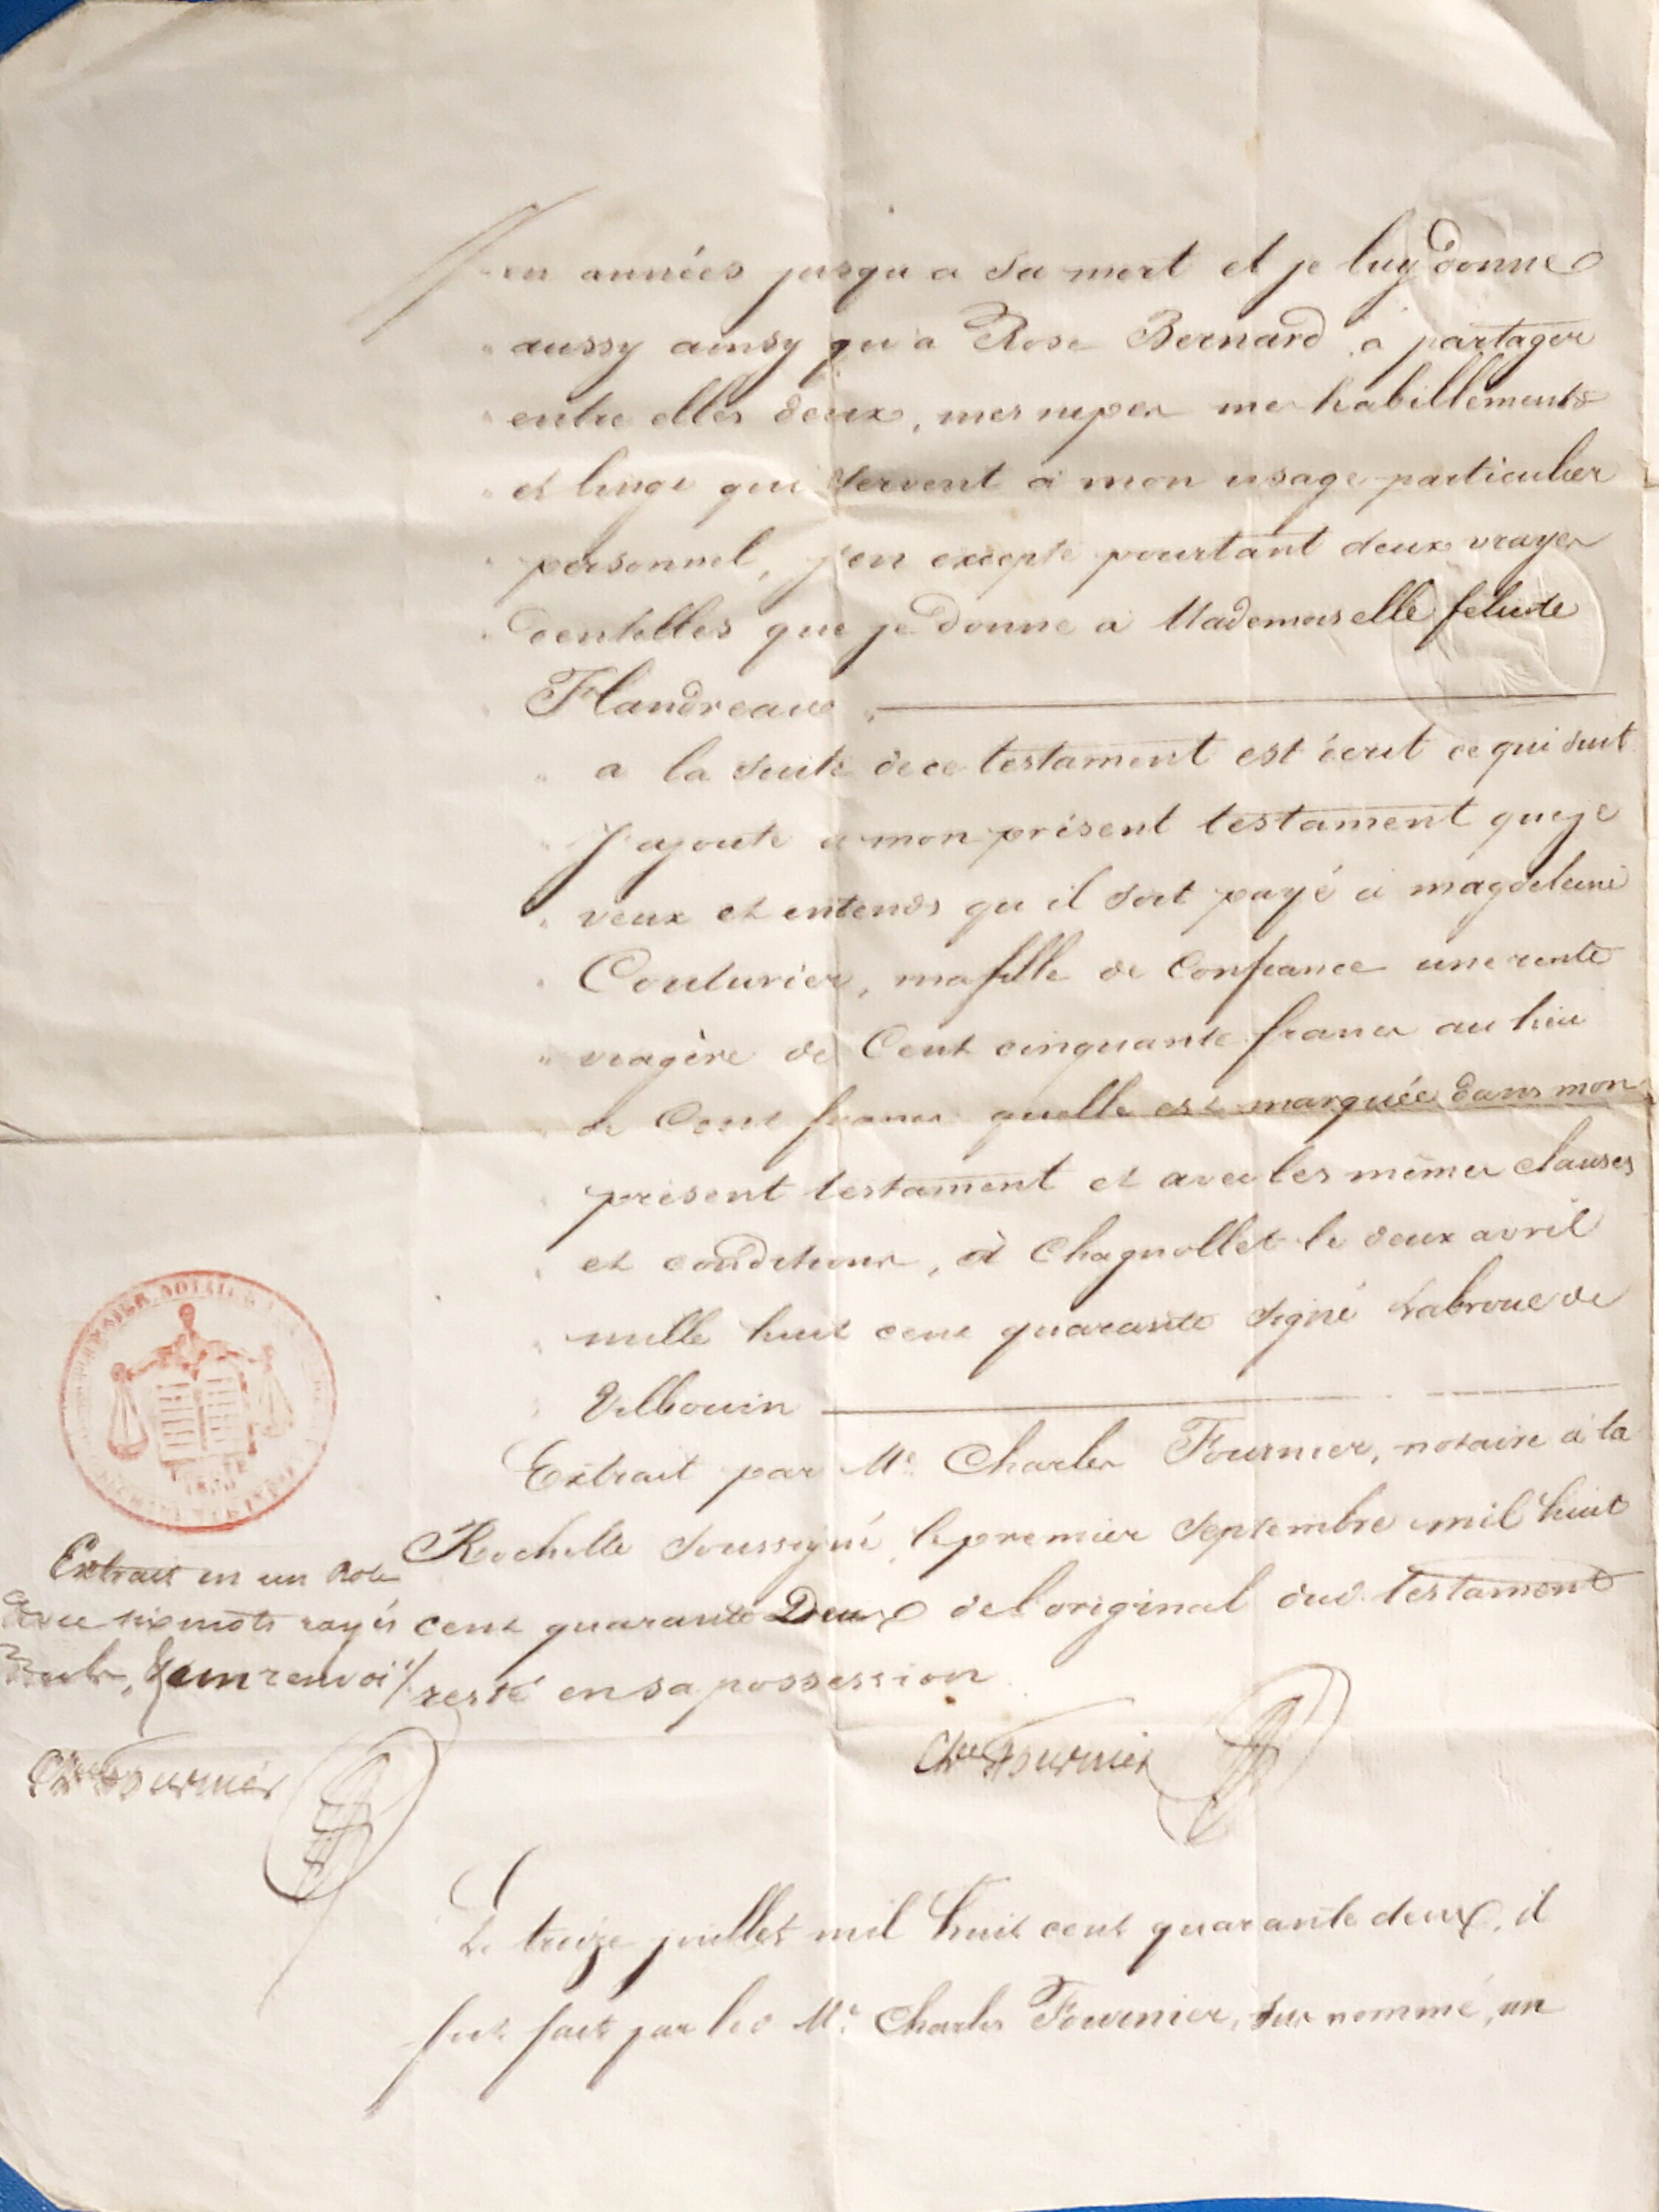 " en années jusqu'a sa mort et je luy donne
" aussy ainsy qu'a Rose Bernard a partager
" entre elles deux, mes nipes mes habillements
" et linge qui servent a mon usage particulier
" personnel, j'en excepte pourtant deux vrayes
" dentelles que je donne a Mademoiselle felicité
" Flandreau "
" a la suite de ce testament est écrit ce qui suit
" J'ajoute a mon présent testament que je
" veux et entends qu'il soit payé a magdeleine
" Couturier, ma fille de Confiance une rente
" viagère de Cent cinquante francs au lieu
" de Cent francs quelle est marquée dans mon
" présent testament et avec les mêmes clauses
" et conditions, à Chagnollet le deux avril
" mille huit cent quarante signé Labroue de
" Vilbouin
Extrait par Me Charles Fournier, notaire à la
Rochelle soussigné, le premier septembre mil huit
cent quarante Deux de l'original dud. testament
resté en sa possession
Extrait en un Role
avec six mots rayés
nuls, & un renvoi /.
Chles Fournier
Chles Fournier
Le treize juillet mil huit cent quarante deux, il
fut fait par led Me Charles Fournier, sus nommé, un